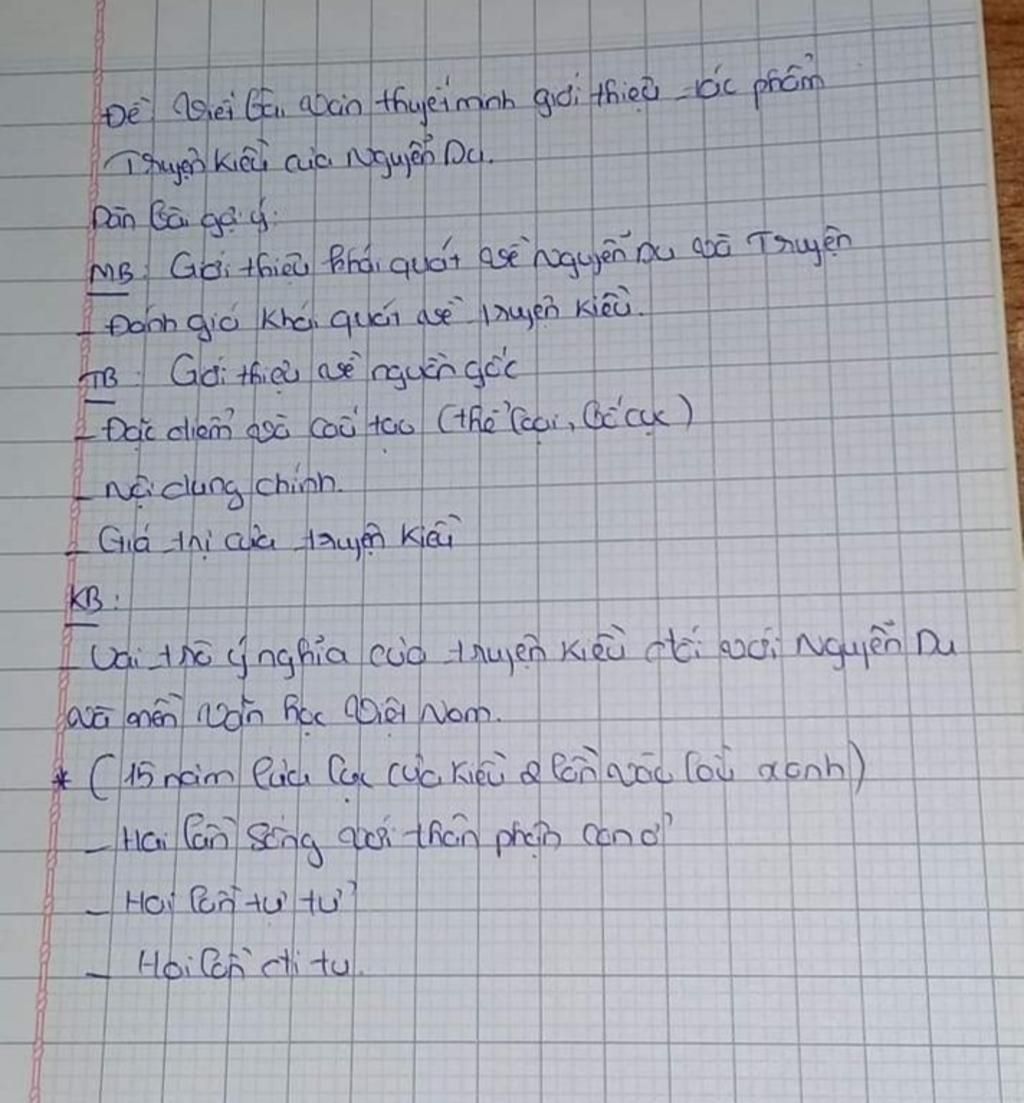 Đề: Viết bài văn thuyết minh giới thiệu tác phẩm
Truyện Kiều của Nguyễn Du.
Dàn bài gợi ý:
MB: Giới thiệu khái quát về Nguyễn Du và Truyện
- Đánh giá khái quát về truyện Kiều.
TB: Giới thiệu về nguồn gốc
- Đặc điểm về cấu tạo (thể loại, bố cục)
- Nội dung chính.
- Giá thị của truyện Kiều
KB:
- Vai trò ý nghĩa của truyện Kiều đối với Nguyễn Du
và nền văn học Việt Nam.
* (15 năm lưu lạc của Kiều 2 lần vào lầu xanh)
- Hai lần sống với thân phận con ở
- Hai lần tự tử
- Hai lần đi tu.